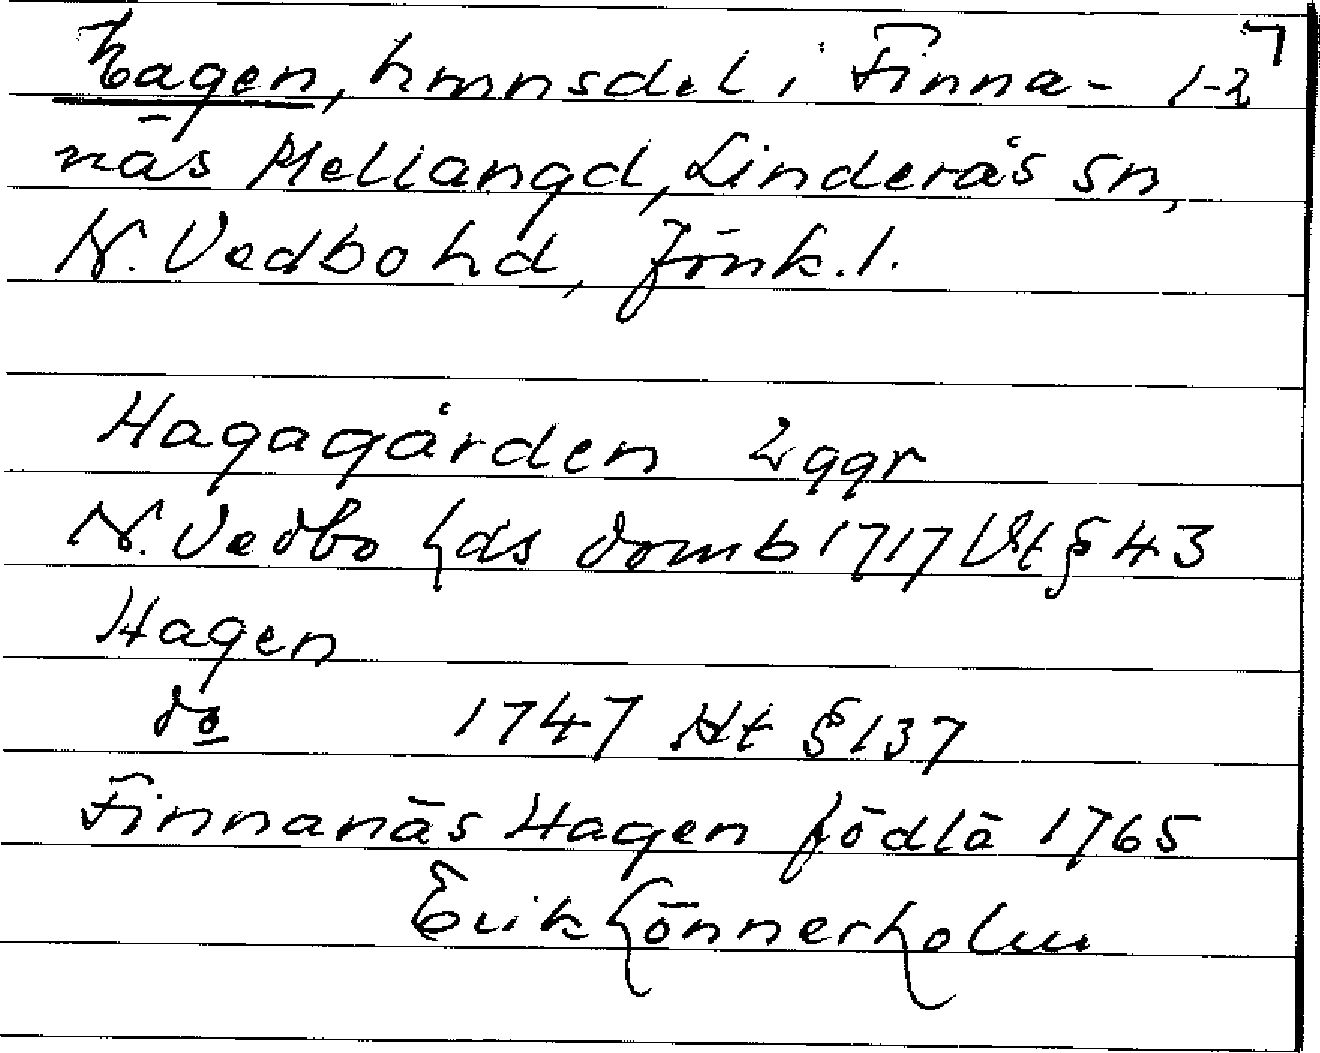 Hagen, hmnsdel i Finna- 1-2 7
näs Mellangd, Linderås sn,
N. Vedbo hd, Jönk. l.
Hagagården 2 ggr
N. Vedbo hds domb 1717 Vt § 43
Hagen
do 1747 Ht § 137
Finnanäs Hagen födlä 1765
Erik Hönnerholm